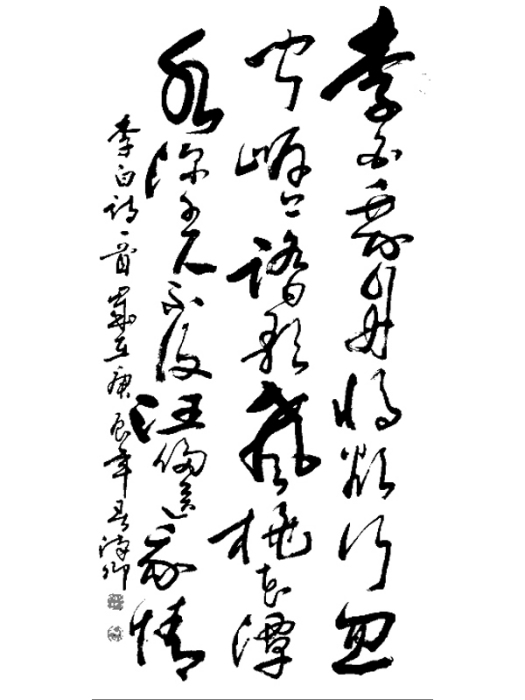 李白乘舟將欲行忽
聞岸上踏歌聲桃花潭
水深千尺不及汪倫送我情
李白詩一首歲在庚辰年春